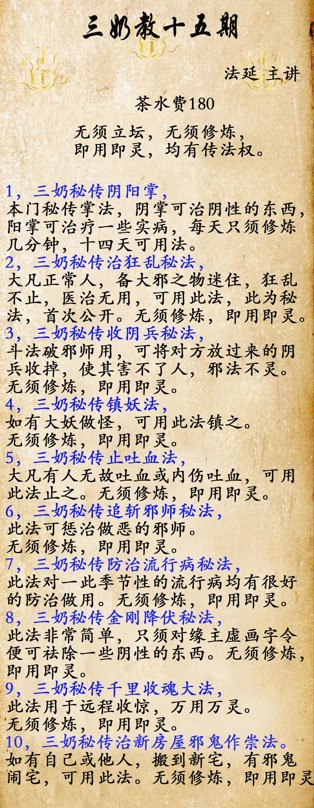 三奶教十五期
法延 主讲
茶水费180
无须立坛，无须修炼，
即用即灵，均有传法权。
1，三奶秘传阴阳掌，
本门秘传掌法，阴掌可治阴性的东西，
阳掌可治疗一些实病，每天只须修炼
几分钟，十四天可用法。
2，三奶秘传治狂乱秘法，
大凡正常人，备大邪之物迷住，狂乱
不止，医治无用，可用此法，此为秘
法，首次公开。无须修炼，即用即灵。
3，三奶秘传收阴兵秘法，
斗法破邪师用，可将对方放过来的阴
兵收掉，使其害不了人，邪法不灵。
无须修炼，即用即灵。
4，三奶秘传镇妖法，
如有大妖做怪，可用此法镇之。
无须修炼，即用即灵。
5，三奶秘传止吐血法，
大凡有人无故吐血或内伤吐血，可用
此法止之。无须修炼，即用即灵。
6，三奶秘传追斩邪师秘法，
此法可惩治做恶的邪师。
无须修炼，即用即灵。
7，三奶秘传防治流行病秘法，
此法对一此季节性的流行病均有很好
的防治做用。无须修炼，即用即灵。
8，三奶秘传金刚降伏秘法，
此法非常简单，只须对缘主虚画字令
便可祛除一些阴性的东西。无须修炼，
即用即灵。
9，三奶秘传千里收魂大法，
此法用于远程收惊，万用万灵。
无须修炼，即用即灵。
10，三奶秘传治新房屋邪鬼作祟法。
如有自己或他人，搬到新宅，有邪鬼
闹宅，可用此法。无须修炼，即用即灵